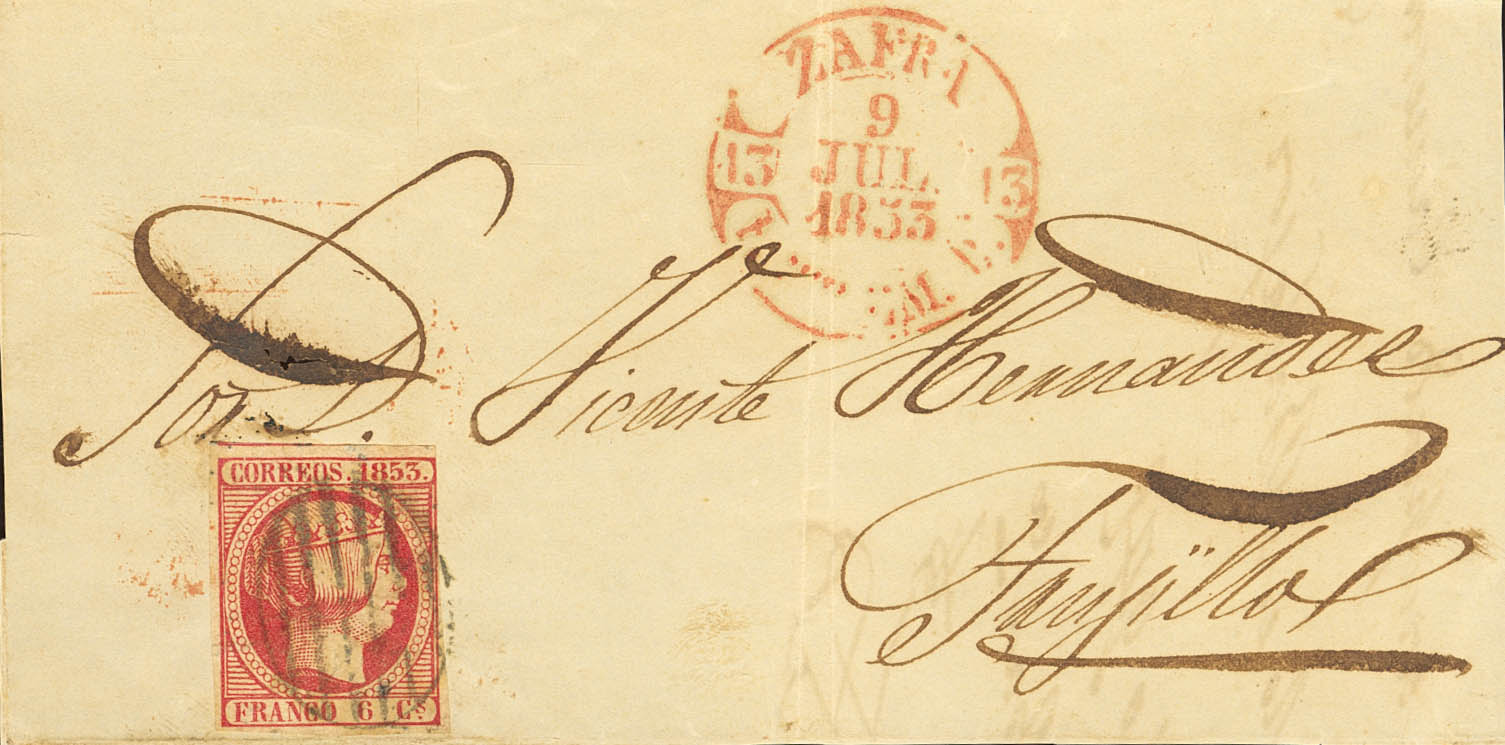 ZAFRA
9
JUL.
1853
13 13
Sor D. Vicente Hernandes
Trujillo
CORREOS. 1853.
FRANCO 6 Cs